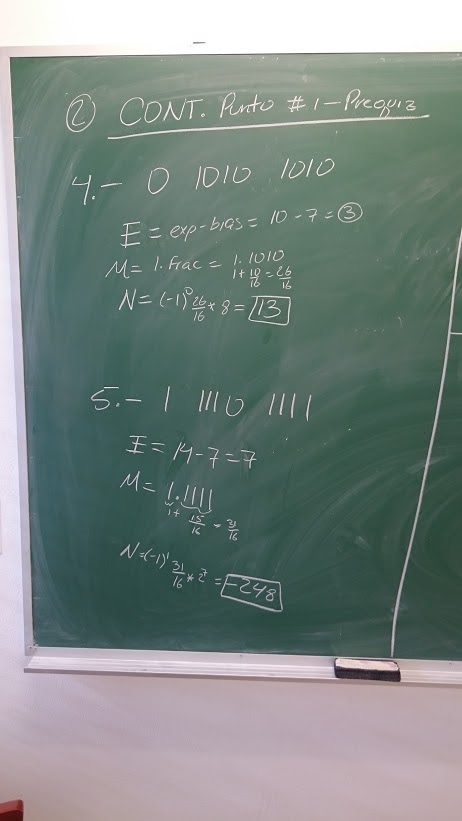 ② CONT. Punto #1-Prequiz
4.- 0 1010 1010
E = exp-bias = 10-7 = ③
M = 1.frac = 1.1010
1+10/16=26/16
N = (-1)^0 26/16 * 8 = 13
5.- 1 1110 1111
E = 14-7=7
M = 1.1111
1+ 15/16 = 31/16
N=(-1)^1 31/16 * 2^7 = -248